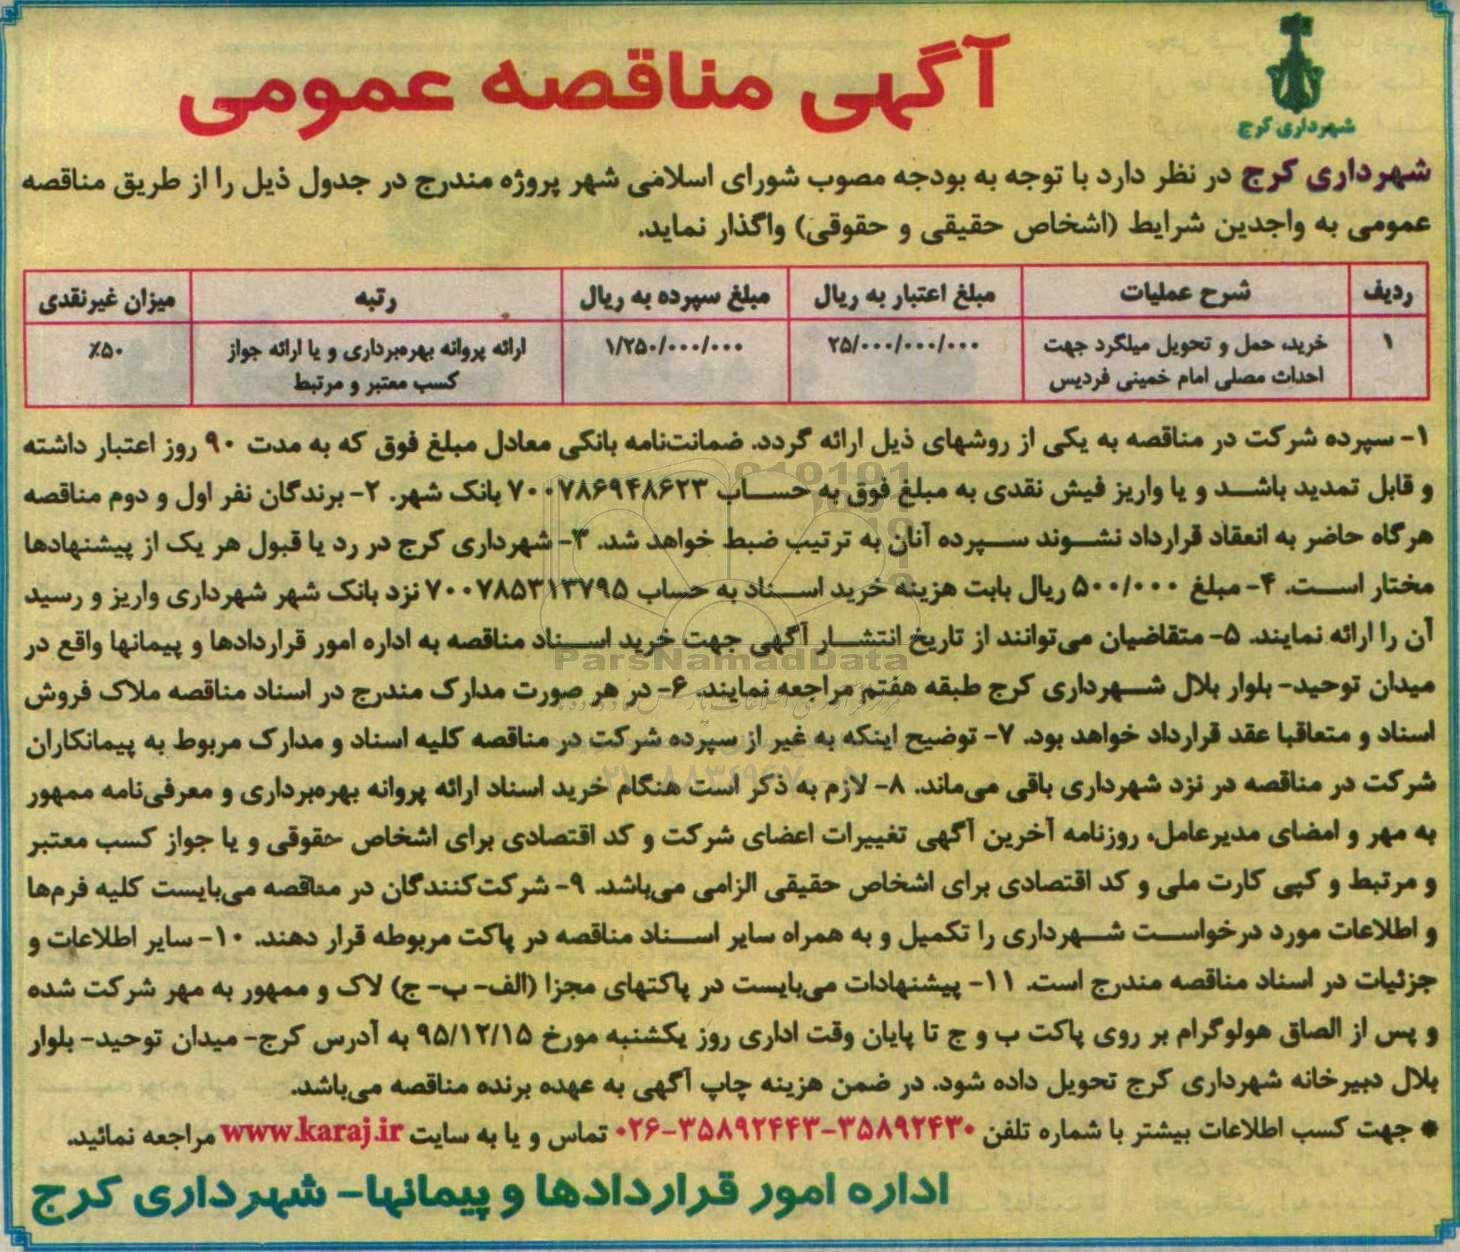 شهرداری کرج
آگهی مناقصه عمومی
شهرداری کرج در نظر دارد با توجه به بودجه مصوب شورای اسلامی شهر پروژه مندرج در جدول ذیل را از طریق مناقصه
عمومی به واجدین شرایط (اشخاص حقیقی و حقوقی) واگذار نماید.
ردیف شرح عملیات مبلغ اعتبار به ریال مبلغ سپرده به ریال رتبه میزان غیرنقدی
۱ خرید، حمل و تحویل میلگرد جهت ۲۵/۰۰۰/۰۰۰/۰۰۰ ۱/۲۵۰/۰۰۰/۰۰۰ ارائه پروانه بهره‌برداری و یا ارائه جواز ۵۰٪
احداث مصلی امام خمینی فردیس کسب معتبر و مرتبط
۱- سپرده شرکت در مناقصه به یکی از روشهای ذیل ارائه گردد. ضمانت‌نامه بانکی معادل مبلغ فوق که به مدت ۹۰ روز اعتبار داشته
و قابل تمدید باشد و یا واریز فیش نقدی به مبلغ فوق به حساب ۷۰۰۷۸۶۹۴۸۶۲۳ بانک شهر. ۲- برندگان نفر اول و دوم مناقصه
هرگاه حاضر به انعقاد قرارداد نشوند سپرده آنان به ترتیب ضبط خواهد شد. ۳- شهرداری کرج در رد یا قبول هر یک از پیشنهادها
مختار است. ۴- مبلغ ۵۰۰/۰۰۰ ریال بابت هزینه خرید اسناد به حساب ۷۰۰۷۸۵۳۱۳۷۹۵ نزد بانک شهر شهرداری واریز و رسید
آن را ارائه نمایند. ۵- متقاضیان می‌توانند از تاریخ انتشار آگهی جهت خرید اسناد مناقصه به اداره امور قراردادها و پیمانها واقع در
میدان توحید- بلوار بلال شهرداری کرج طبقه هفتم مراجعه نمایند. ۶- در هر صورت مدارک مندرج در اسناد مناقصه ملاک فروش
اسناد و متعاقبا عقد قرارداد خواهد بود. ۷- توضیح اینکه به غیر از سپرده شرکت در مناقصه کلیه اسناد و مدارک مربوط به پیمانکاران
شرکت در مناقصه در نزد شهرداری باقی می‌ماند. ۸- لازم به ذکر است هنگام خرید اسناد ارائه پروانه بهره‌برداری و معرفی‌نامه ممهور
به مهر و امضای مدیرعامل، روزنامه آخرین آگهی تغییرات اعضای شرکت و کد اقتصادی برای اشخاص حقوقی و یا جواز کسب معتبر
و مرتبط و کپی کارت ملی و کد اقتصادی برای اشخاص حقیقی الزامی می‌باشد. ۹- شرکت‌کنندگان در مناقصه می‌بایست کلیه فرم‌ها
و اطلاعات مورد درخواست شهرداری را تکمیل و به همراه سایر اسناد مناقصه در پاکت مربوطه قرار دهند. ۱۰- سایر اطلاعات و
جزئیات در اسناد مناقصه مندرج است. ۱۱- پیشنهادات می‌بایست در پاکتهای مجزا (الف- ب- ج) لاک و ممهور به مهر شرکت شده
و پس از الصاق هولوگرام بر روی پاکت ب و ج تا پایان وقت اداری روز یکشنبه مورخ ۹۵/۱۲/۱۵ به آدرس کرج- میدان توحید- بلوار
بلال دبیرخانه شهرداری کرج تحویل داده شود. در ضمن هزینه چاپ آگهی به عهده برنده مناقصه می‌باشد.
* جهت کسب اطلاعات بیشتر با شماره تلفن ۳۵۸۹۲۴۳۰-۳۵۸۹۲۴۴۳-۰۲۶ تماس و یا به سایت www.karaj.ir مراجعه نمائید.
اداره امور قراردادها و پیمانها- شهرداری کرج
ParsNamadData